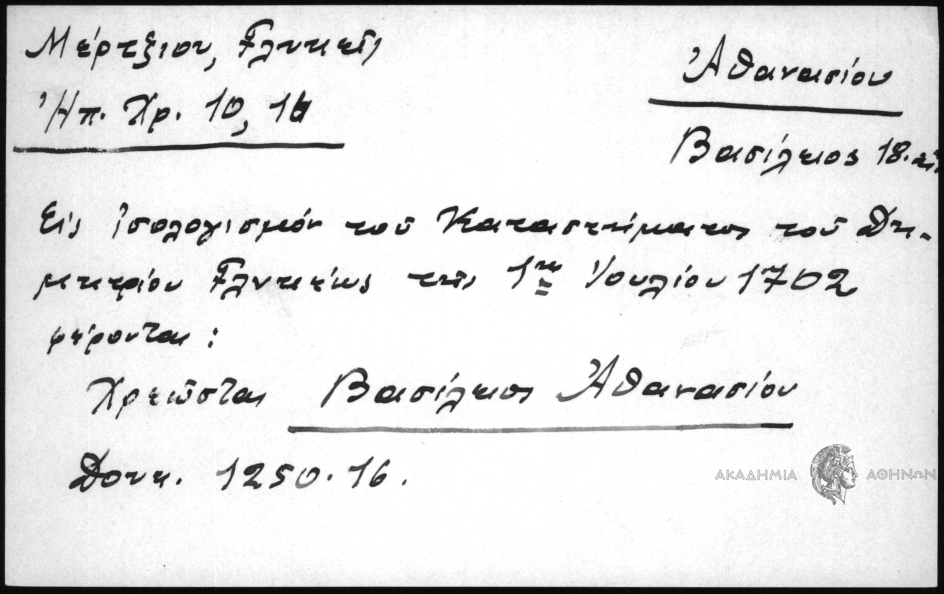 Μέρτζιου, Γλυκεῖς
Ἠπ. Χρ. 10, 16
Ἀθανασίου
Βασίλειος 18. αἰ
Εἰς Ἰσολογισμόν τοῦ Καταστήματος τοῦ Δη-
μητρίου Γλυκέως τῆς 1ης Ἰουλίου 1702
φέρονται:
Χρεῶσται Βασίλειος Ἀθανασίου
Δουκ. 1250.16.
ΑΚΑΔΗΜΙΑ ΑΘΗΝΩΝ